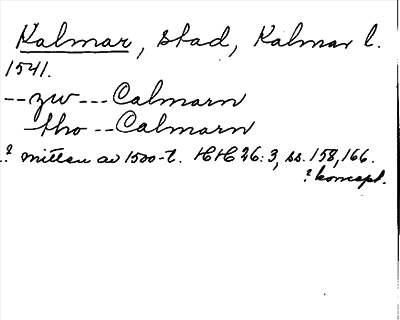 Kalmar, stad, Kalmar l.
1541.
--zw---Calmarn
tho--Calmarn
? mitten av 1500-t. HH 26:3, ss. 158, 166.
? koncept.